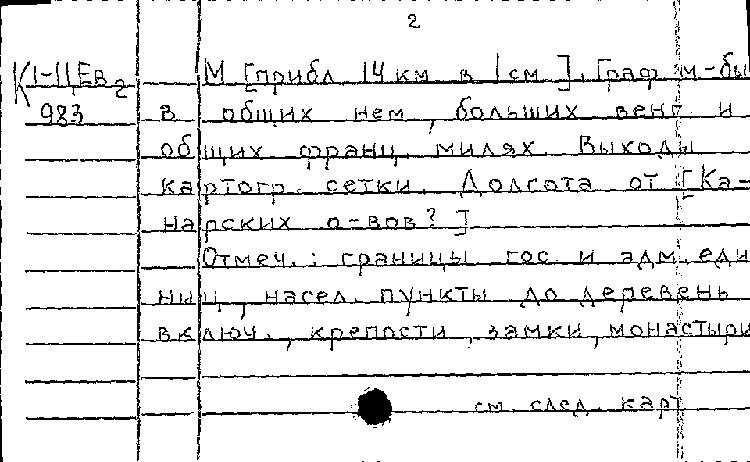 2
К1-ЦЕв2 М [прибл 14 км в 1 см]. Граф м-бы
983 в общих нем, больших венг и
общих франц. милях. Выходы
картогр. сетки. Долгота от [Ка-
нарских о-вов?]
Отмеч.: границы гос и адм. еди
ниц, насел. пункты до деревень
включ., крепости, замки, монастыри
см. след. карт